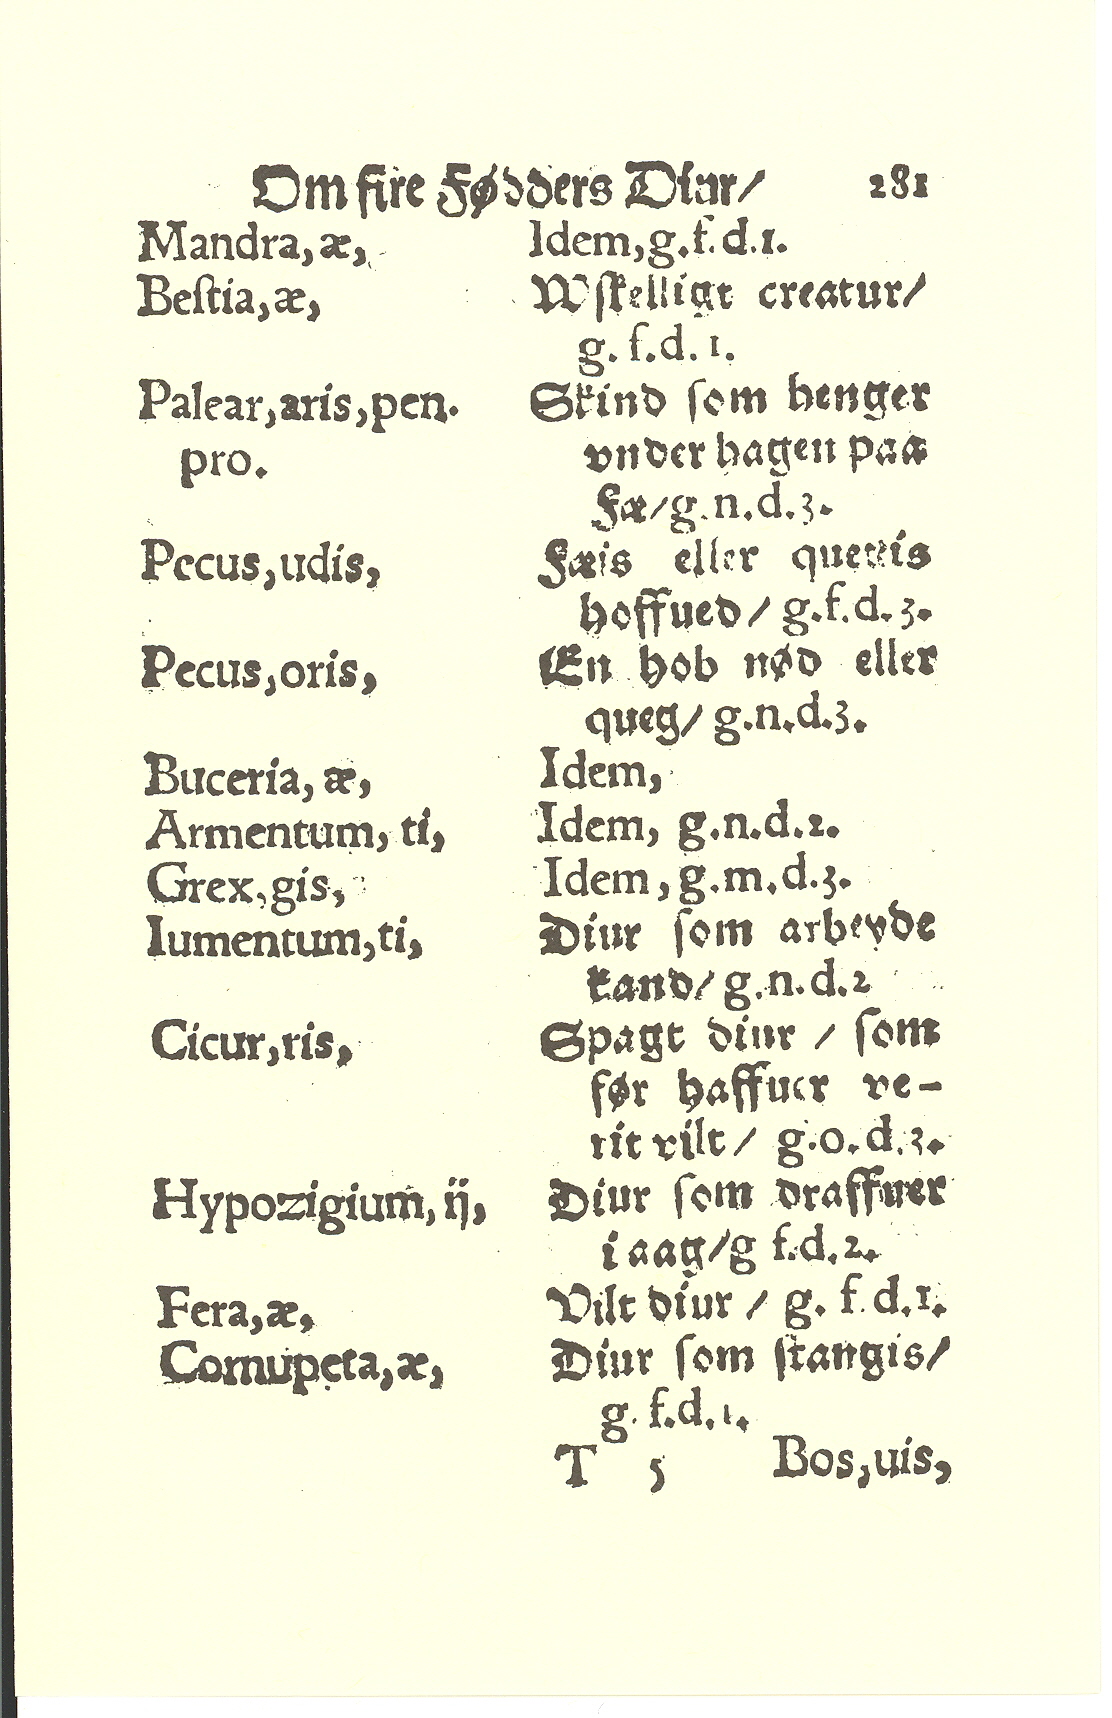 Om fire Fødders Diur/ 281
Mandra, æ, Idem, g.f.d.1.
Beſtia, æ, Wſkelligt creatur/
g. f.d. 1.
Palear, aris, pen. Skind ſom henger
pro. vnder hagen paa
Fæ/ g.n.d.3.
Pecus, udis, Fæis eller quegis
hoffued/ g.f.d.3.
Pecus, oris, En hob nød eller
queg/ g.n.d.3.
Buceria, æ, Idem,
Armentum, ti, Idem, g.n.d.2.
Grex, gis, Idem, g.m.d.3.
Iumentum, ti, Diur ſom arbeyde
kand/ g.n.d.2
Cicur, ris, Spagt diur / ſom
før haffuer ve-
rit vilt / g.o.d.3.
Hypozigium, ij, Diur ſom draffuer
i aag/ g f.d.2.
Fera, æ, Vilt diur / g. f d.1.
Cornupeta, æ, Diur ſom ſtangis/
g. f.d.1.
T 5 Bos, uis,